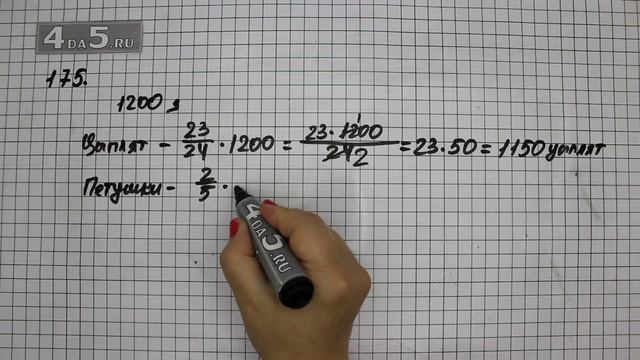 4DA5.RU
175.
1200 я
Цыплят - 23/24 · 1200 = 23 · 1200/24 2 = 23 · 50 = 1150 цыплят
1
Петушки - 2/5 ·
4DA5.RU